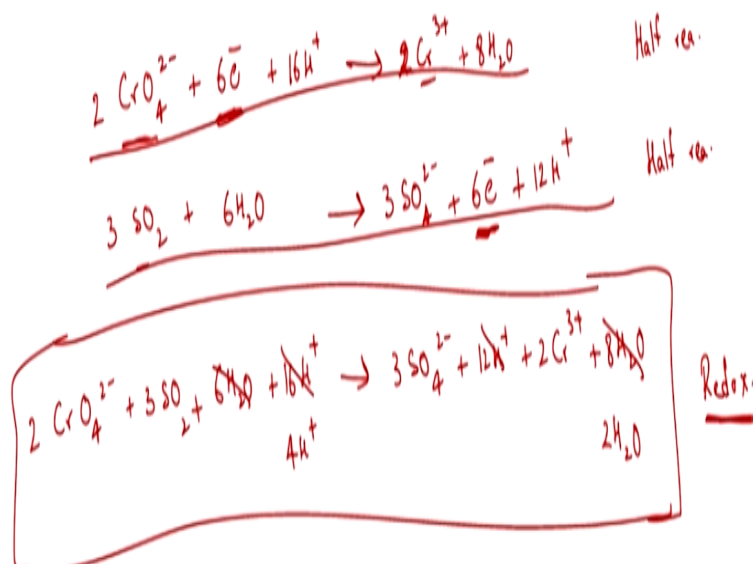 2 CrO₄²⁻ + 6e⁻ + 16H⁺ → 2Cr³⁺ + 8H₂O Half rea.
3 SO₂ + 6H₂O → 3SO₄²⁻ + 6e⁻ + 12H⁺ Half rea.
2 CrO₄²⁻ + 3SO₂ + 6H₂O + 16H⁺ → 3SO₄²⁻ + 12H⁺ + 2Cr³⁺ + 8H₂O Redox.
4H⁺ 2H₂O